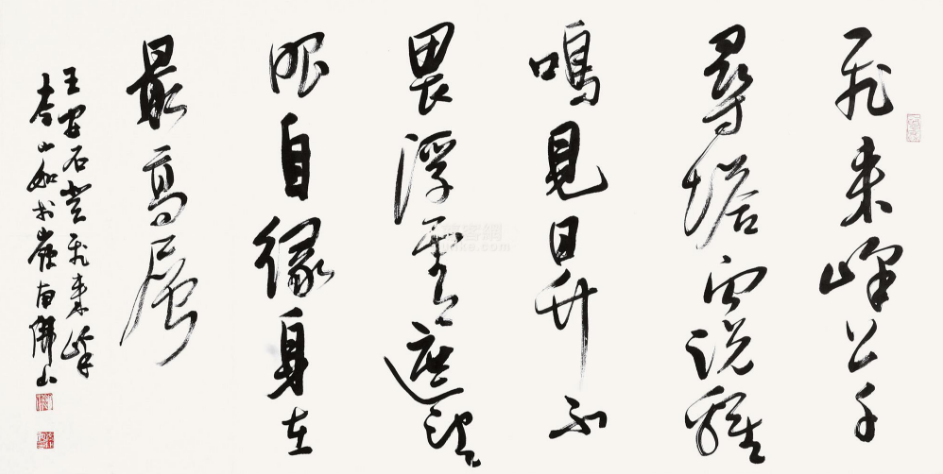 飛来峰上千
尋塔聞说雞
鳴見日升不
畏浮雲遮望
眼自緣身在
最高層
王安石登飛来峰
嶺南佛山